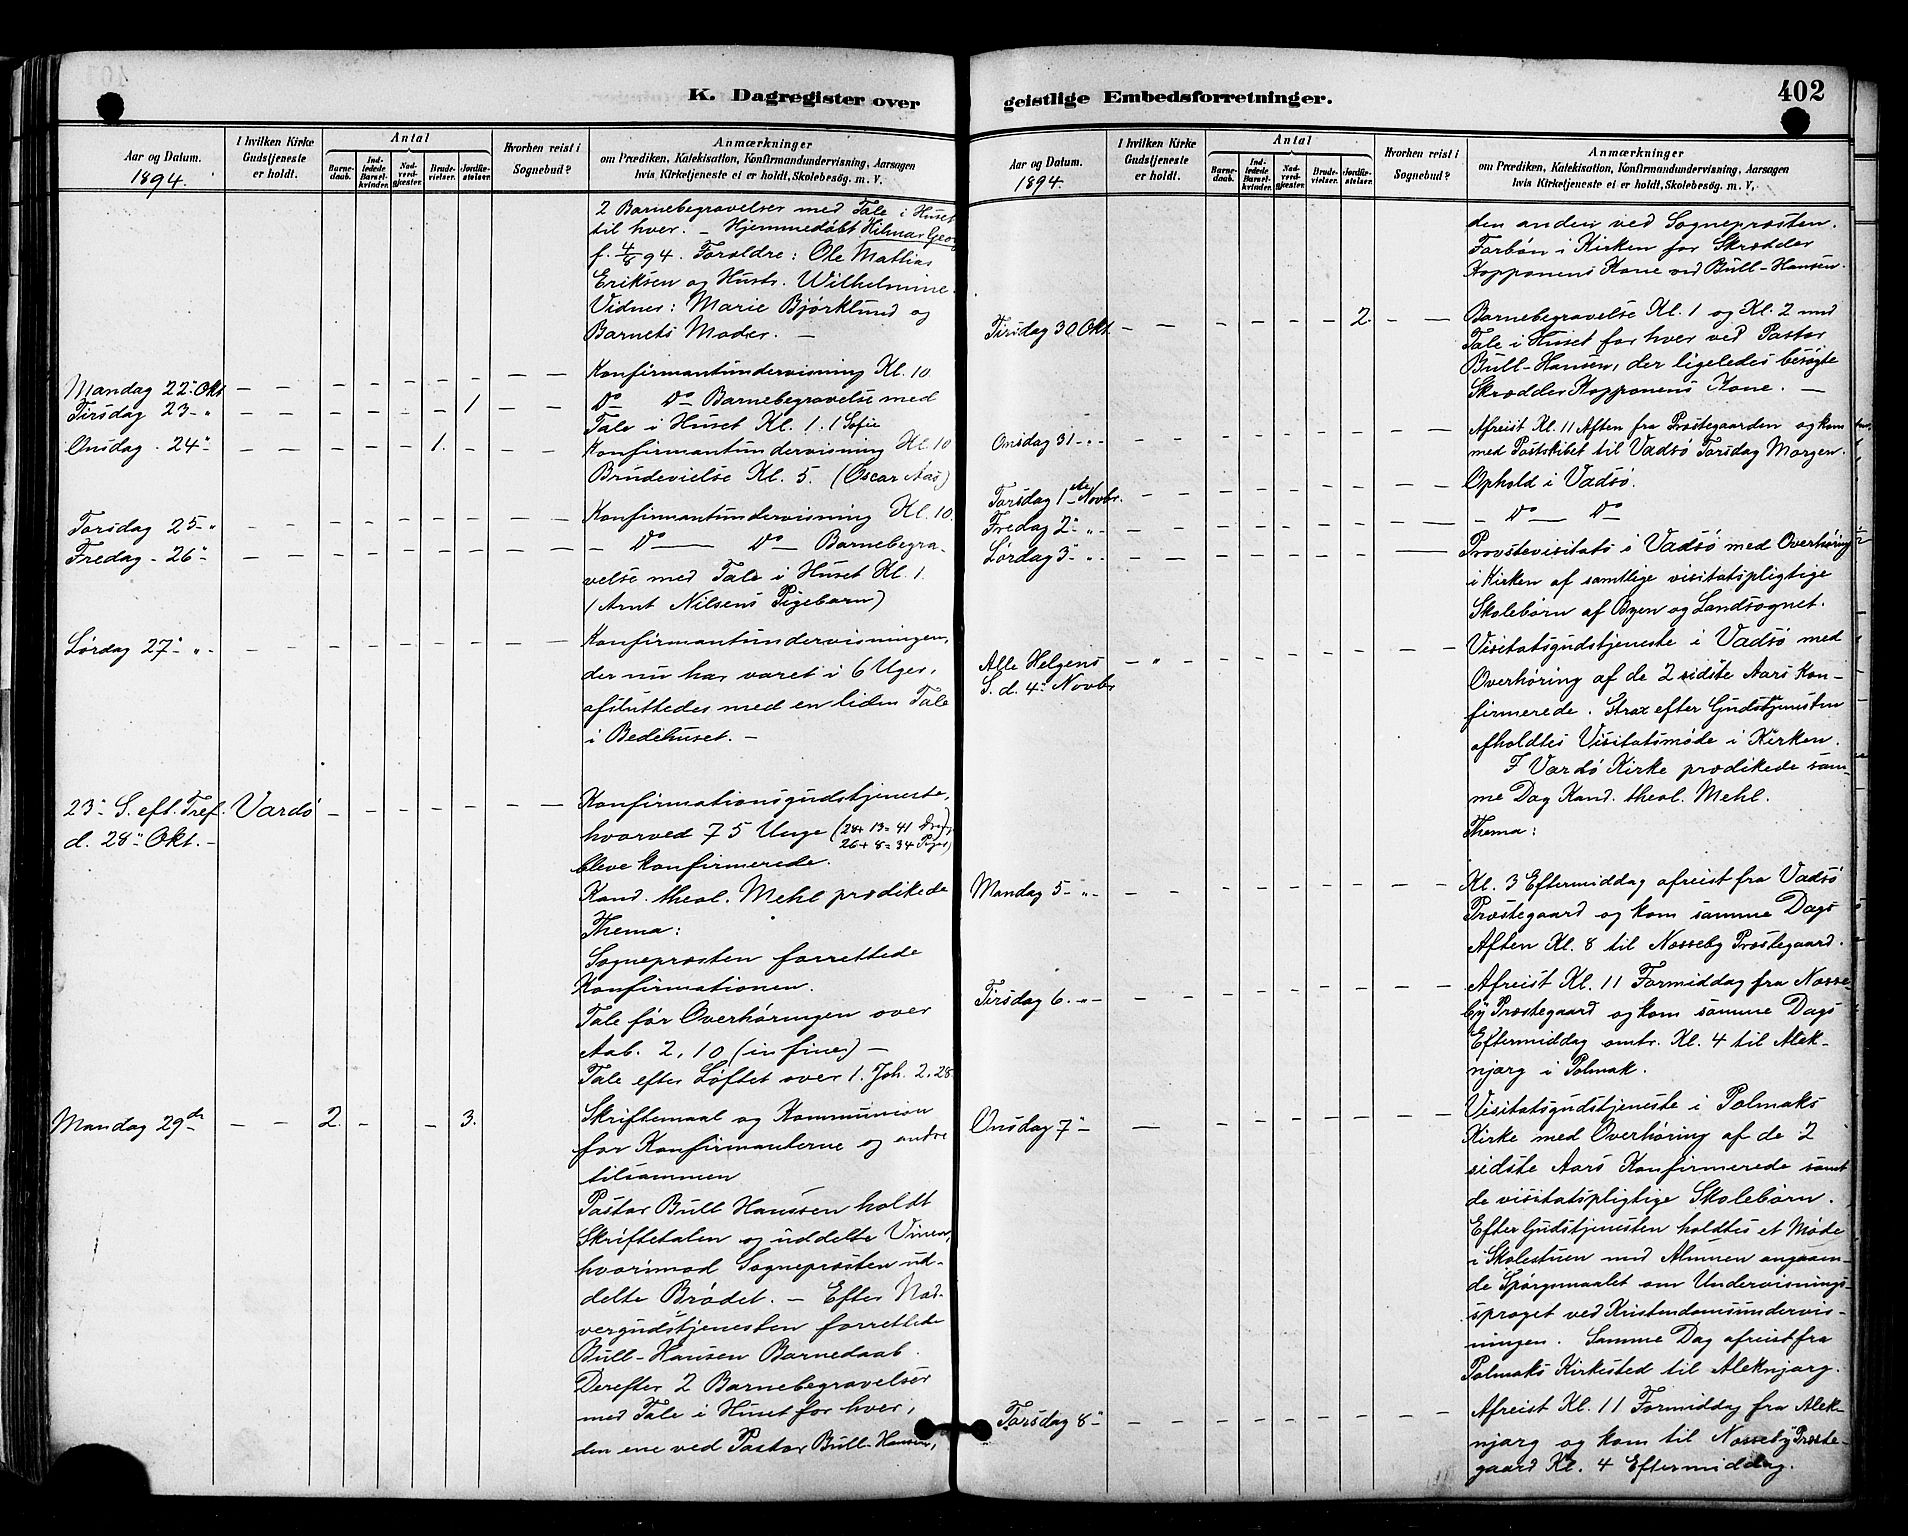 K. Dagregister over
Aar og Datum.
1894.
I hvilken Kirke Gudstjeneste er holdt.
Antal
Barnedaab.
Indledede Barselkvinder.
Nadverdgjester.
Brudevielser.
Jordfæstelser.
Hvorhen reist i Sognebud?
Anmærkninger
om Prædiken, Katekisation, Konfirmandundervisning, Aarsagen
hvis Kirketjeneste ei er holdt, Skolebesøg. m. V.
2 Barnebegravelser med Tale i Huset
til hver. – Hjemmedøbt Hilmar Georg
f. 4/8 94. Forældre: Ole Mathias
Eriksen og Hustr. Wilhelmine.
Vidner: Marie Bjørklund og
Barnets Moder. –
Mandag 22. Okt – – – – – – – – – Konfirmantundervisning Kl. 10
Tirsdag 23 – " – – – – – – 1 – – Do Do Barnebegravelse med
Tale i Huset Kl. 1. 1 Sofie
Onsdag – 24 " – – – – – 1. – – – Konfirmantundervisning Kl. 10
Brudevielse Kl. 5. (Oscar Aas)
Torsdag 25 – " – – – – – – – – – Konfirmantundervisning Kl. 10.
Fredag – 26 " – – – – – – – – – – Do — Do — Barnebegra-
velse med Tale i Huset Kl. 1.
(Arnt Nilsens Pigebarn)
Lørdag 27 – " – – – – – – – – – Konfirmantundervisningen,
der nu har varet i 6 Uger,
afsluttedes med en liden Tale
i Bedehuset. –
23 – S. eft. Tref. Vardö – – – – – – – Konfirmationsgudstjeneste,
d. 28 Okt. –
hvorved 75 Unge (28 + 13 = 41
26 + 8 = 34 Piger)
bleve konfirmerede.
Kand. theol. Mehl prædikede
Thema:
Sognepræsten forrettede
Konfirmationen.
Tale før Overhøringen over
Aab. 2, 10 (in fine) –
Tale efter Løftet over 1. Joh. 2, 28
Mandag 29 de – – 2. – – 3. Skriftemaal og Kommunion
for Konfirmanterne og andre
tilsammen
Pastor Bull Hanssen holdt
Skriftetalen og uddelte Vinen,
hvorimod Sognepræsten ud-
delte Brødet. – Efter Nad-
vergudstjenesten forrettede
Bull-Hansen Barnedaab.
Derefter 2 Barnebegravelser
med Tale i Huset for hver,
den ene ved Pastor Bull-Hansen,
geistlige Embedsforretninger.
402
Aar og Datum.
1894.
I hvilken Kirke Gudstjeneste er holdt.
Antal
Barnedaab.
Indledede Barselkvinder.
Nadverdgjester.
Brudevielser.
Jordfæstelser.
Hvorhen reist i Sognebud?
Anmærkninger
om Prædiken, Katekisation, Konfirmandundervisning, Aarsagen
hvis Kirketjeneste ei er holdt, Skolebesøg. m. V.
den anden ved Sognepræsten.
Forbøn i Kirken for Skrædder
Kopponens Kone ved Bull-Hansen.
Tirsdag 30 Okt – – – – – – 2 – – Barnebegravelse Kl. 1 og Kl. 2 med
Tale i Huset for hver ved Pastor
Bull-Hansen, der ligeledes besøgte
Skrædder Kopponens Kone. –
Onsdag 31 – " – – – – – – – – – Afreist Kl. 11 Aften fra Præstegaarden og kom
med Postskibet til Vadsö Torsdag Morgen.
Torsdag 1ste Novbr. – – – – – – – – – Ophold i Vadsö.
Fredag 2 " – – – – – – – – – – Do — Do
Lørdag 3 – " – – – – – – – – Provstevisitats i Vadsö med Overhøring
i Kirken af samtlige visitatspligtige
Skolebørn af Byen og Landsognet.
Alle Helgens – " – – – – – – – Visitatsgudstjeneste i Vadsö med
S. d. 4. Novbr
Overhøring af de 2 sidste Aars Kon-
firmerede. Strax efter Gudstjenesten
afholdtes Visitatsmøde i Kirken.
I Vardö Kirke prædikede sam-
me Dag Kand. theol. Mehl.
Thema:
Mandag 5 – " – – – – – – – – – Kl. 3 Eftermiddag afreist fra Vadsö
Præstegaard og kom samme Dags
Aften Kl. 8 til Næsseby Præstegaard.
Tirsdag 6. " – – – – – – – – – Afreist Kl. 11 Formiddag fra Næsse-
by Præstegaard og kom samme Dags
Eftermiddag omtr. Kl. 4 til Alek-
njarg i Polmak.
Onsdag 7 " – – – – – – – – Visitatsgudstjeneste i Polmaks
Kirke med Overhøring af de 2
sidste Aars Konfirmerede samt
de visitatspligtige Skolebørn.
Efter Gudstjenesten holdtes et Møde
i Skolestuen med Almuen angaaen-
de Spørgsmaalet om Undervisnings-
sproget ved Kristendomsundervis-
ningen. Samme Dag afreist fra
Polmaks Kirkested til Aleknjarg.
Torsdag 8 " – – – – – – – – – Afreist Kl. 11 Formiddag fra Alek-
njarg og kom til Næsseby Præste-
gaard Kl. 4 Eftermiddag.